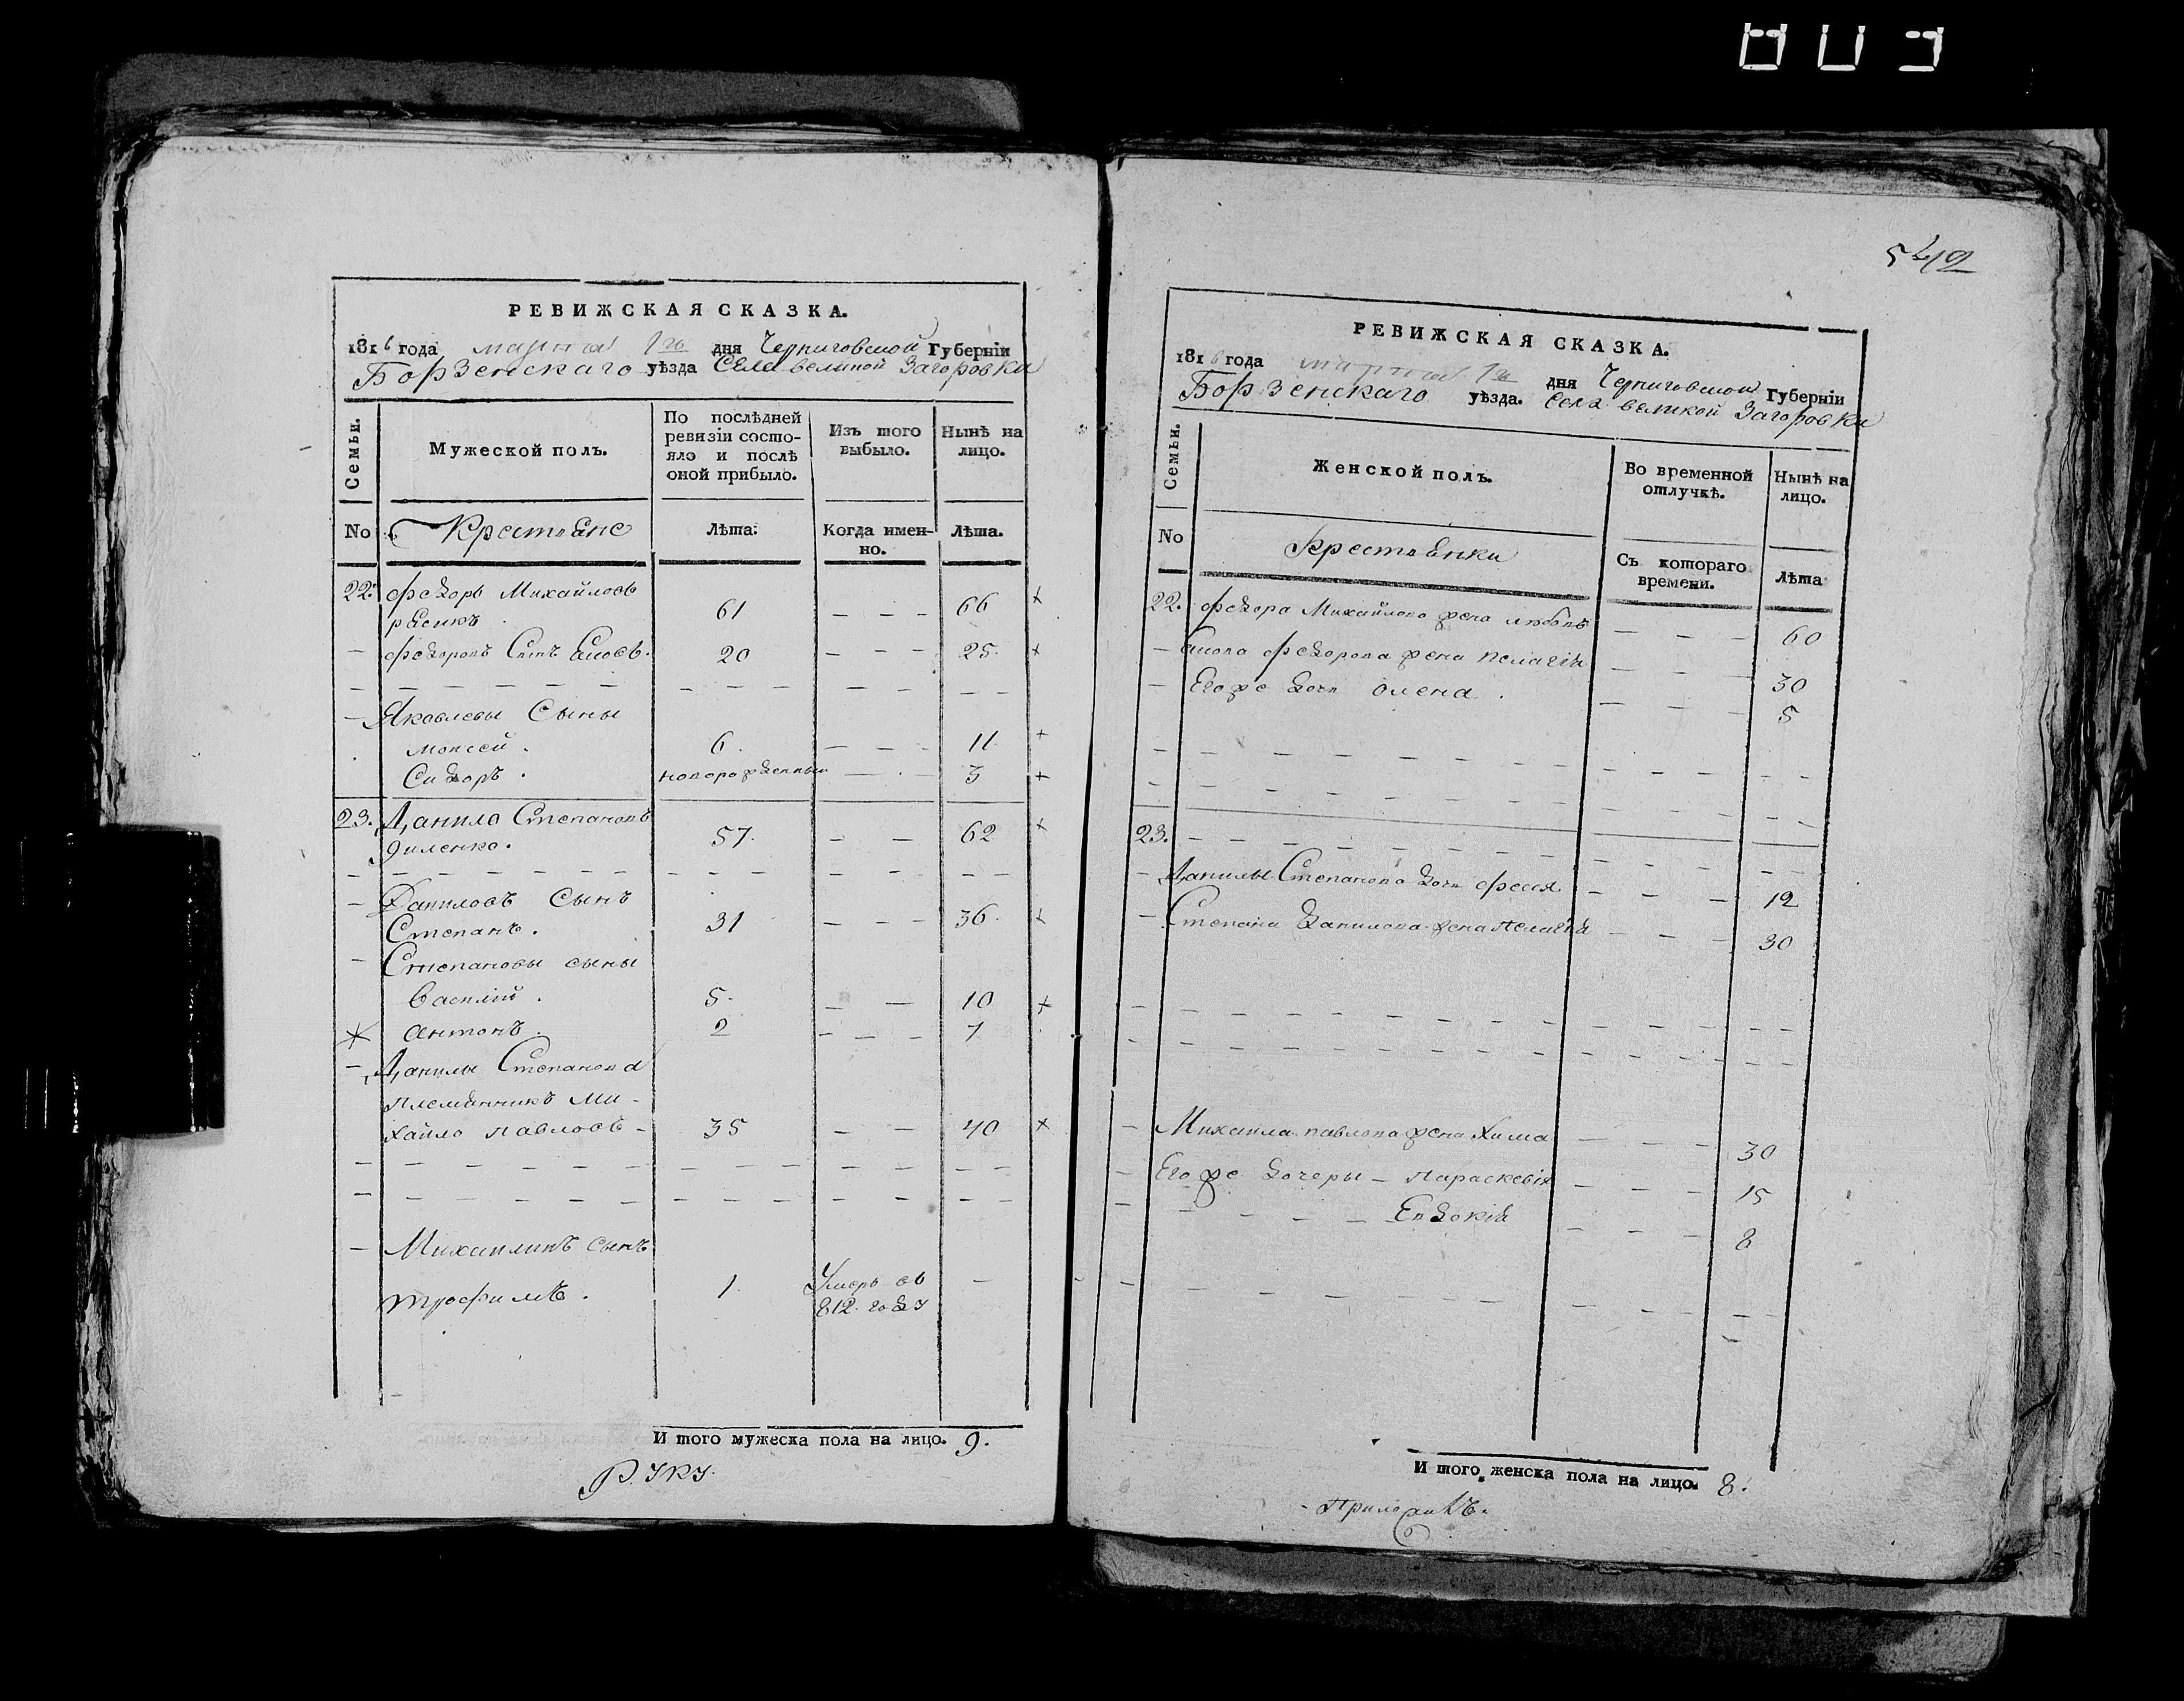 542
РЕВИЖСКАЯ СКАЗКА.
1816 года марта 1го дня Черниговской Губерніи
Борзенскаго уѣзда Села великой Загоровки
Семьи.
Мужеской полъ.
По послѣдней ревизіи состояло и послѣ оной прибыло.
Изъ того выбыло.
Нынѣ на лицо.
No Крестьяне Лѣта. Когда именно. Лѣта.
22. федоръ Михайловъ
61 — — — 66 ×
— федоровъ Сынъ 20 — — — 25. ×
— Яковлевы Сыны
Моисей. 6. — — — 11. +
Сидоръ. новорожденный — . — 3 +
23. Данило Степановъ
57. — — 62 ×
— Даниловъ Сынъ
Степанъ. 31 — — — 36. ×
— Степановы сыны
Василій. 5. — — 10 ×
Антонъ. 2 — — — 7
— Данилы Степанова
племянникъ Ми-
хайло павловъ - 35 — — 40 ×
— Михаиловъ сынъ
трофимъ. 1. Умеръ въ 812. году —
И того мужеска пола на лицо. 9.
Руку.
РЕВИЖСКАЯ СКАЗКА.
1816 года марта 1го дня Черниговской Губерніи
Борзенскаго уѣзда. Села великой Загоровки
Семьи.
Женской полъ.
Во временной отлучкѣ.
Нынѣ на лицо.
No Крестьянки Съ котораго времени. Лѣта
22. федора Михайлова жена любовь — — — 60
федорова жена пелагія — — — 30
— Его же дочь олена. — — — 5
23.
— Данилы Степанова дочь феся — — — 12
— Степана данилова жена пелагія — — — 30
— Михаила павлова жена Хима — — — 30
— Его же дочеры — параскевія — — — 15
Евдокія — — — 8
И того женска пола на лицо. 8.
- Приложилъ.